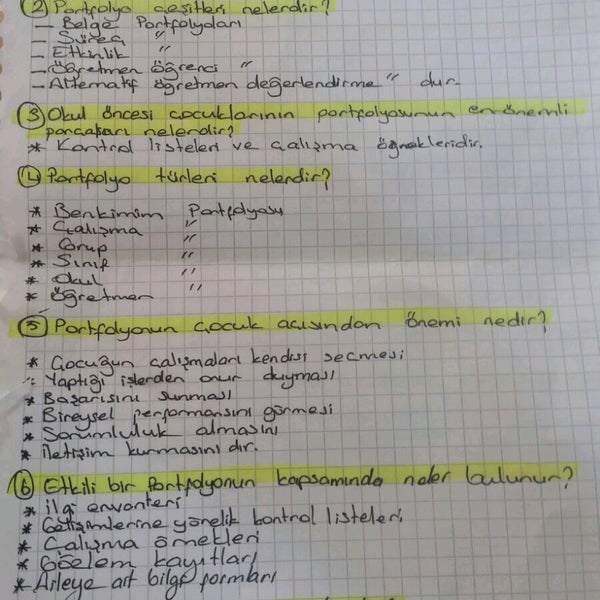 ② Portfolyo çeşitleri nelerdir?
— Belge Portfolyoları
— Süreç "
— Etkinlik "
— Öğretmen öğrenci "
— Alternatif öğretmen değerlendirme " dur.
③ Okul öncesi çocuklarının portfolyosunun en önemli
parçaları nelerdir?
* Kontrol listeleri ve çalışma örnekleridir.
④ Portfolyo türleri nelerdir?
* Benkimim Portfolyosu
* Çalışma "
* Grup "
* Sınıf "
* Okul "
* Öğretmen "
⑤ Portfolyonun çocuk açısından önemi nedir?
* Çocuğun çalışmaları kendisi seçmesi
* Yaptığı işlerden onur duyması
* Başarısını sunması
* Bireysel performansını görmesi
* Sorumluluk almasını
* iletişim kurmasını dır.
⑥ Etkili bir Portfolyonun kapsamında neler bulunur?
* ilgi envanteri
* Gelişimlerine yönelik kontrol listeleri
* Çalışma örnekleri
* Gözlem kayıtları
* Aileye ait bilgi formları